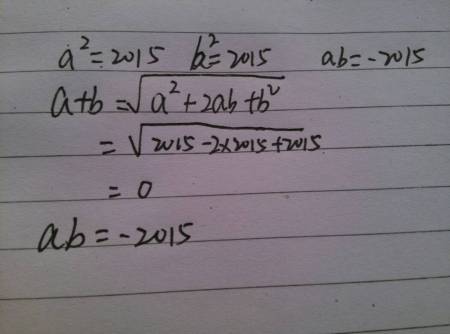 a²=2015 b²=2015 ab=-2015
a+b=√a²+2ab+b²
=√2015-2×2015+2015
=0
ab=-2015